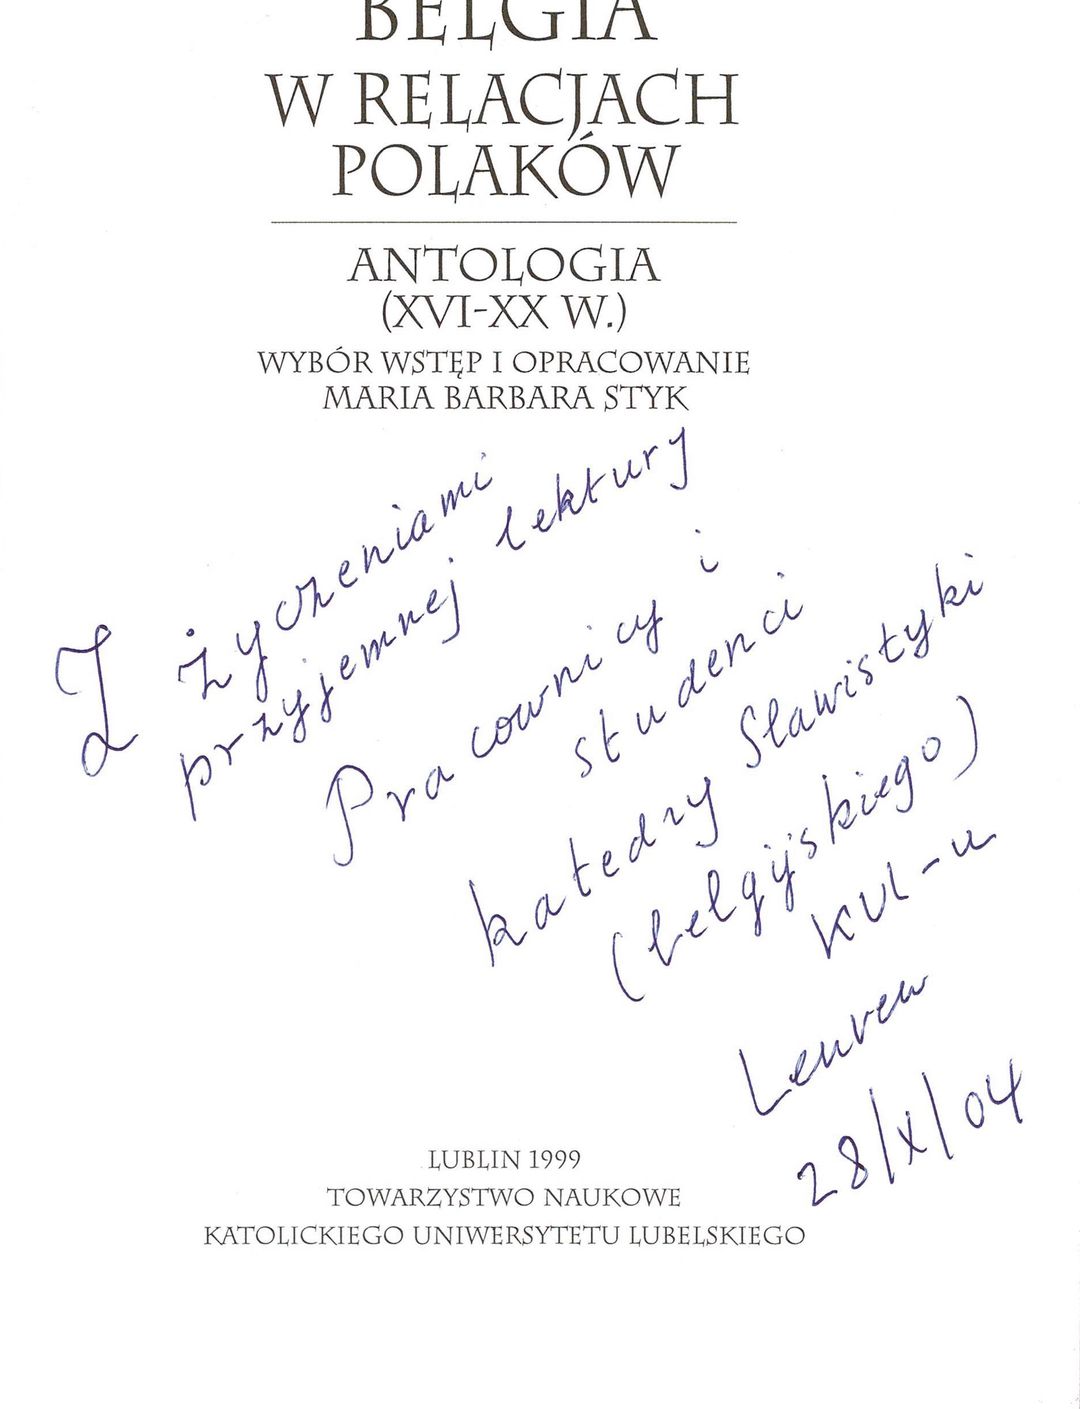 BELGIA
W RELACJACH
POLAKÓW
ANTOLOGIA
(XVI-XX W.)
WYBÓR WSTĘP I OPRACOWANIE
MARIA BARBARA STYK
Z życzeniami
przyjemnej lektury
Pracownicy i
studenci
katedry Slawistyki
(belgijskiego)
KUL-u
Leuven
28/X/04
LUBLIN 1999
TOWARZYSTWO NAUKOWE
KATOLICKIEGO UNIWERSYTETU LUBELSKIEGO